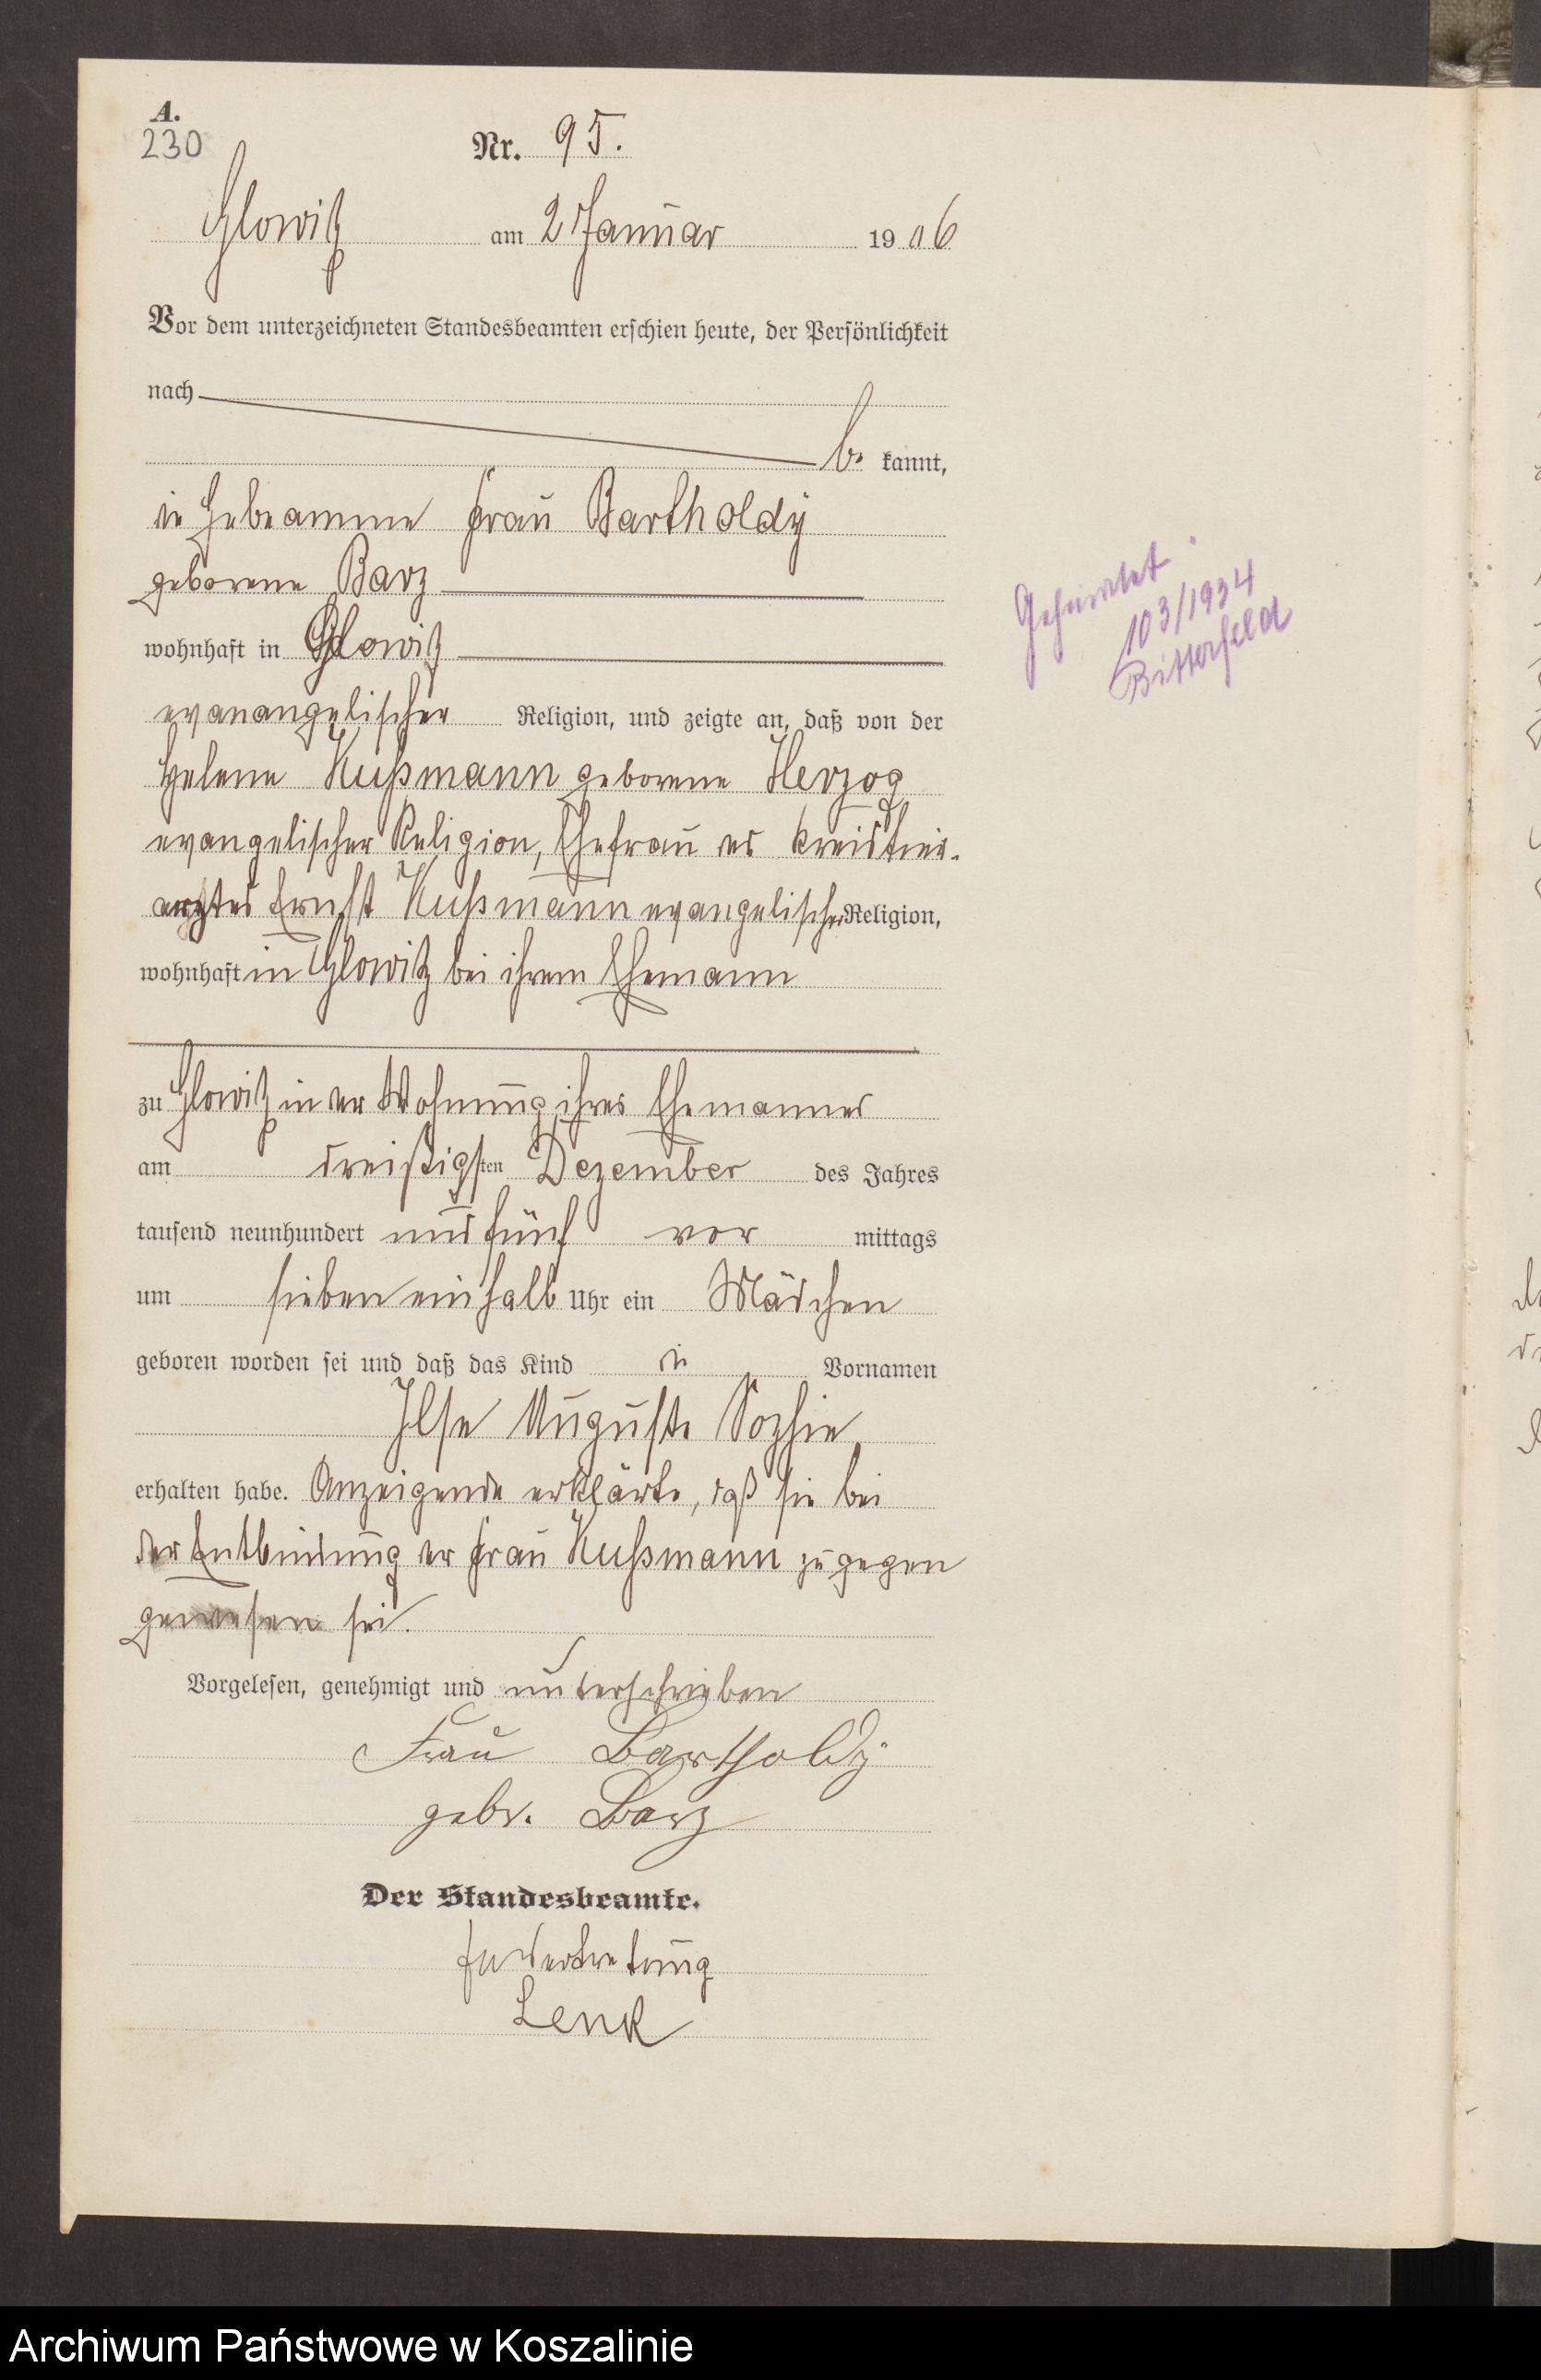 A.
230
Nr. 95.
Glowitz am 2 Januar 1906
Vor dem unterzeichneten Standesbeamten erschien heute, der Persönlichkeit
nach
be kannt,
die Hebeamme Frau Bartholdy
geborene Barz
wohnhaft in Glowitz
evanangelischer Religion, und zeigte an, daß von der
Helene Kußmann geborene Herzog
evangelischer Religion, Ehefrau des Kreistier-
arztes Ernst Kußmann evangelischer Religion,
wohnhaft in Glowitz bei ihrem Ehemann
zu Glowitz in der Wohnung ihres Ehemannes
am dreißigsten Dezember des Jahres
tausend neunhundert und fünf vor mittags
um sieben einhalb Uhr ein Mädchen
geboren worden sei und daß das Kind die Vornamen
Ilse Auguste Sophie
erhalten habe. Anzeigende erklärte, daß sie bei
der Entbindung der Frau Kußmann zugegen
gewesen sei.
Vorgelesen, genehmigt und unterschrieben
Frau Bartholdy
gebr. Barz
Der Standesbeamte.
In Vertretung
Lenk
Geheiratet
103/1934
Bitterfeld
Archiwum Państwowe w Koszalinie